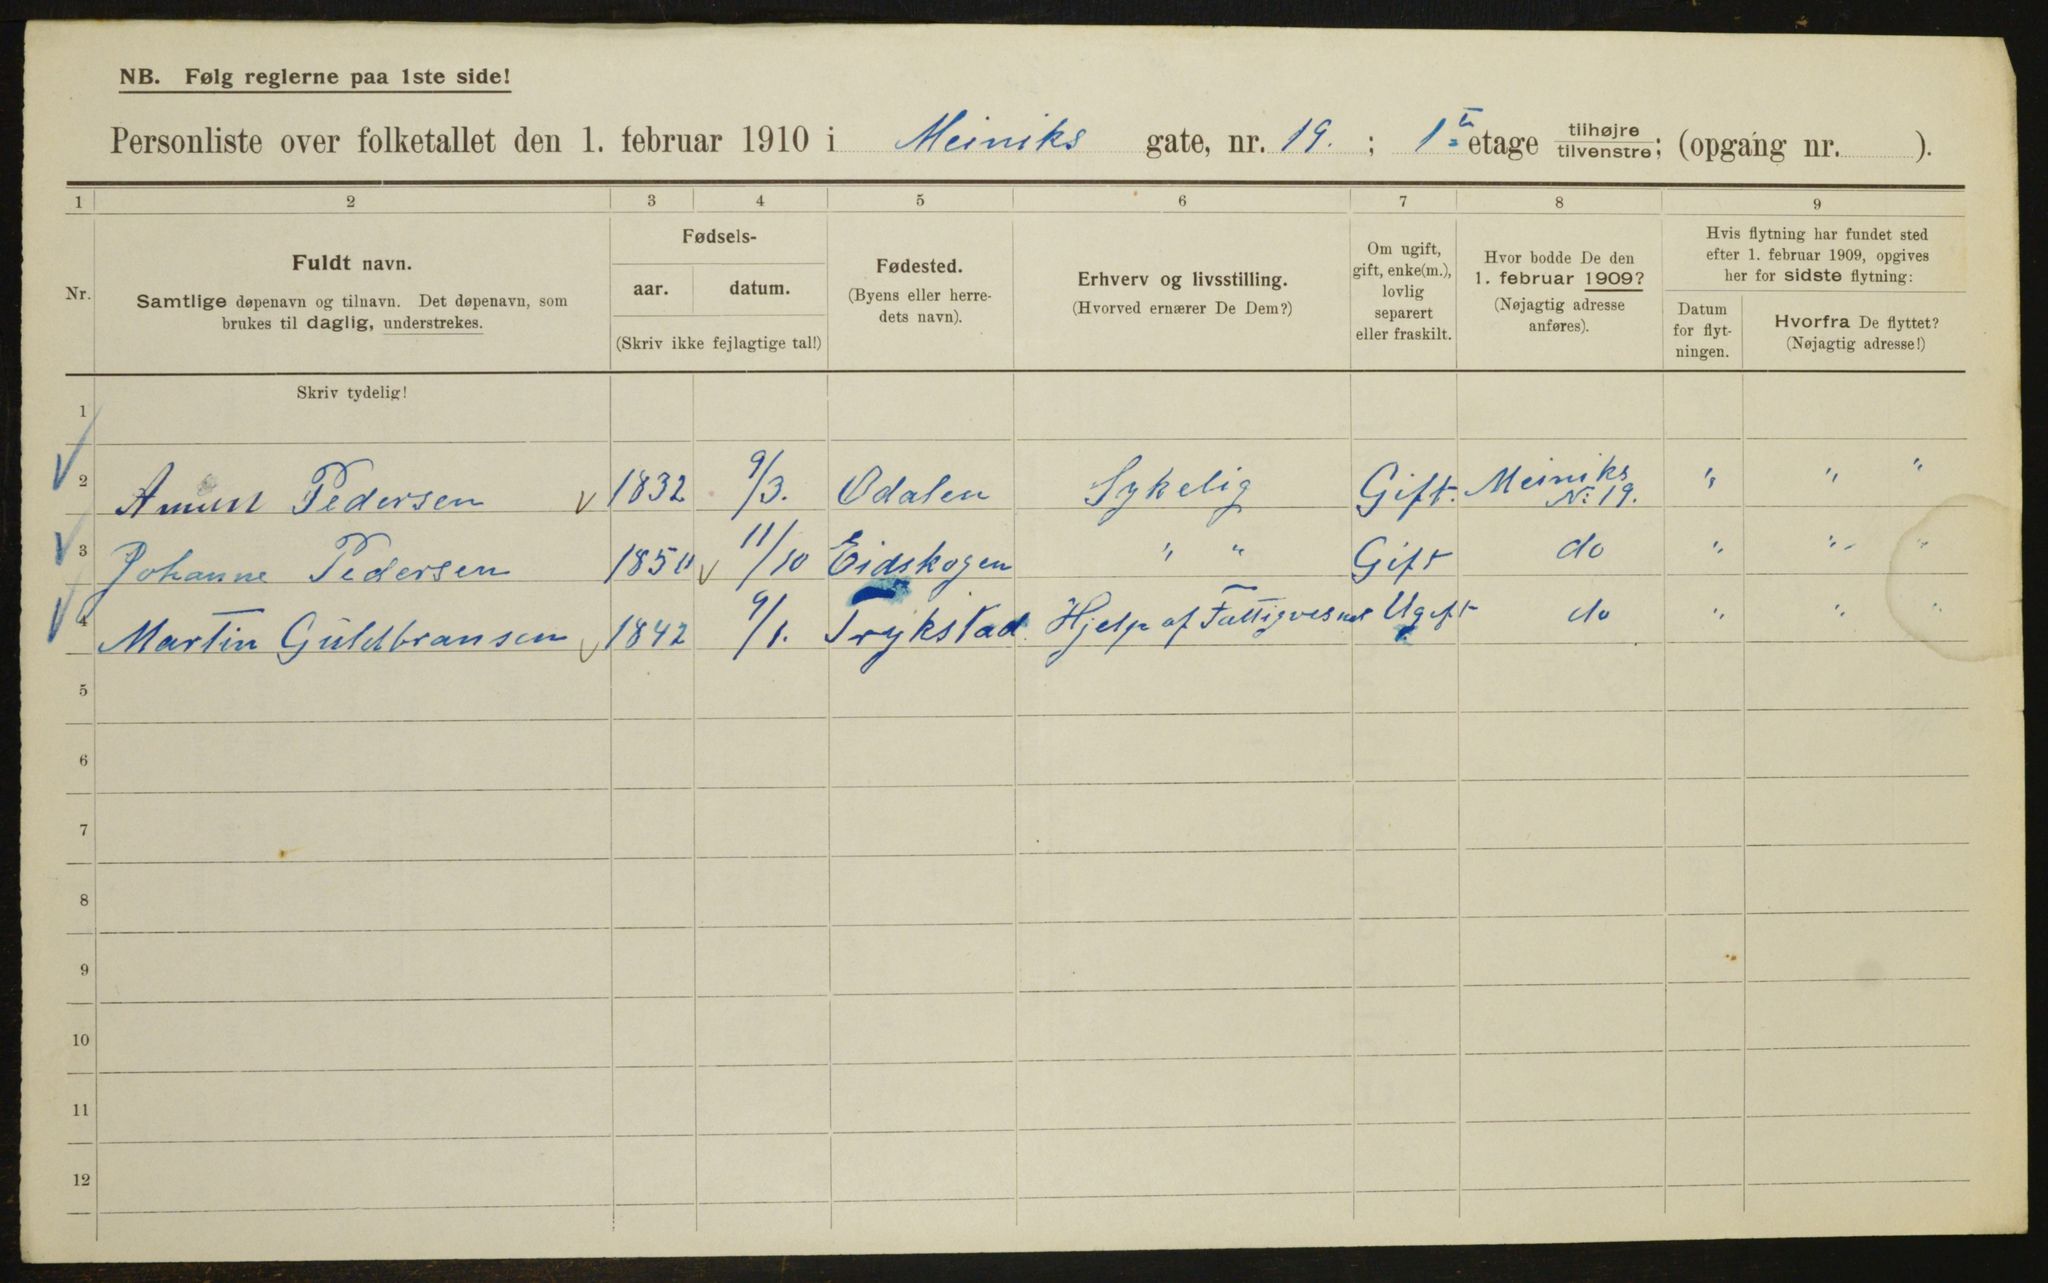 NB. Følg reglerne paa 1ste side!
Personliste over folketallet den 1. februar 1910 i Meiniks gate, nr. 19. ; 1ste etage tilhøjre/tilvenstre; (opgang nr. ).
1 2 3 4 5 6 7 8 9
Nr.
Fuldt navn.
Samtlige døpenavn og tilnavn. Det døpenavn, som
brukes til daglig, understrekes.
Fødsels-
aar. datum.
(Skriv ikke fejlagtige tal!)
Fødested.
(Byens eller herre-
dets navn).
Erhverv og livsstilling.
(Hvorved ernærer De Dem?)
Om ugift,
gift, enke(m.),
lovlig
separert
eller fraskilt.
Hvor bodde De den
1. februar 1909?
(Nøjagtig adresse
anføres).
Hvis flytning har fundet sted
efter 1. februar 1909, opgives
her for sidste flytning:
Datum
for flyt-
ningen.
Hvorfra De flyttet?
(Nøjagtig adresse!)
Skriv tydelig!
1
2 Amun Pedersen 1832 9/3. Odalen Sykelig Gift. Meiniks No 19. " " "
3 Johanne Pedersen 1850 11/10 Eidskogen " " Gift do " " "
4 Martin Guldbransen 1842 9/1. Trykstad Hjelp af Fattigvesnet Ugift do " " "
5
6
7
8
9
10
11
12